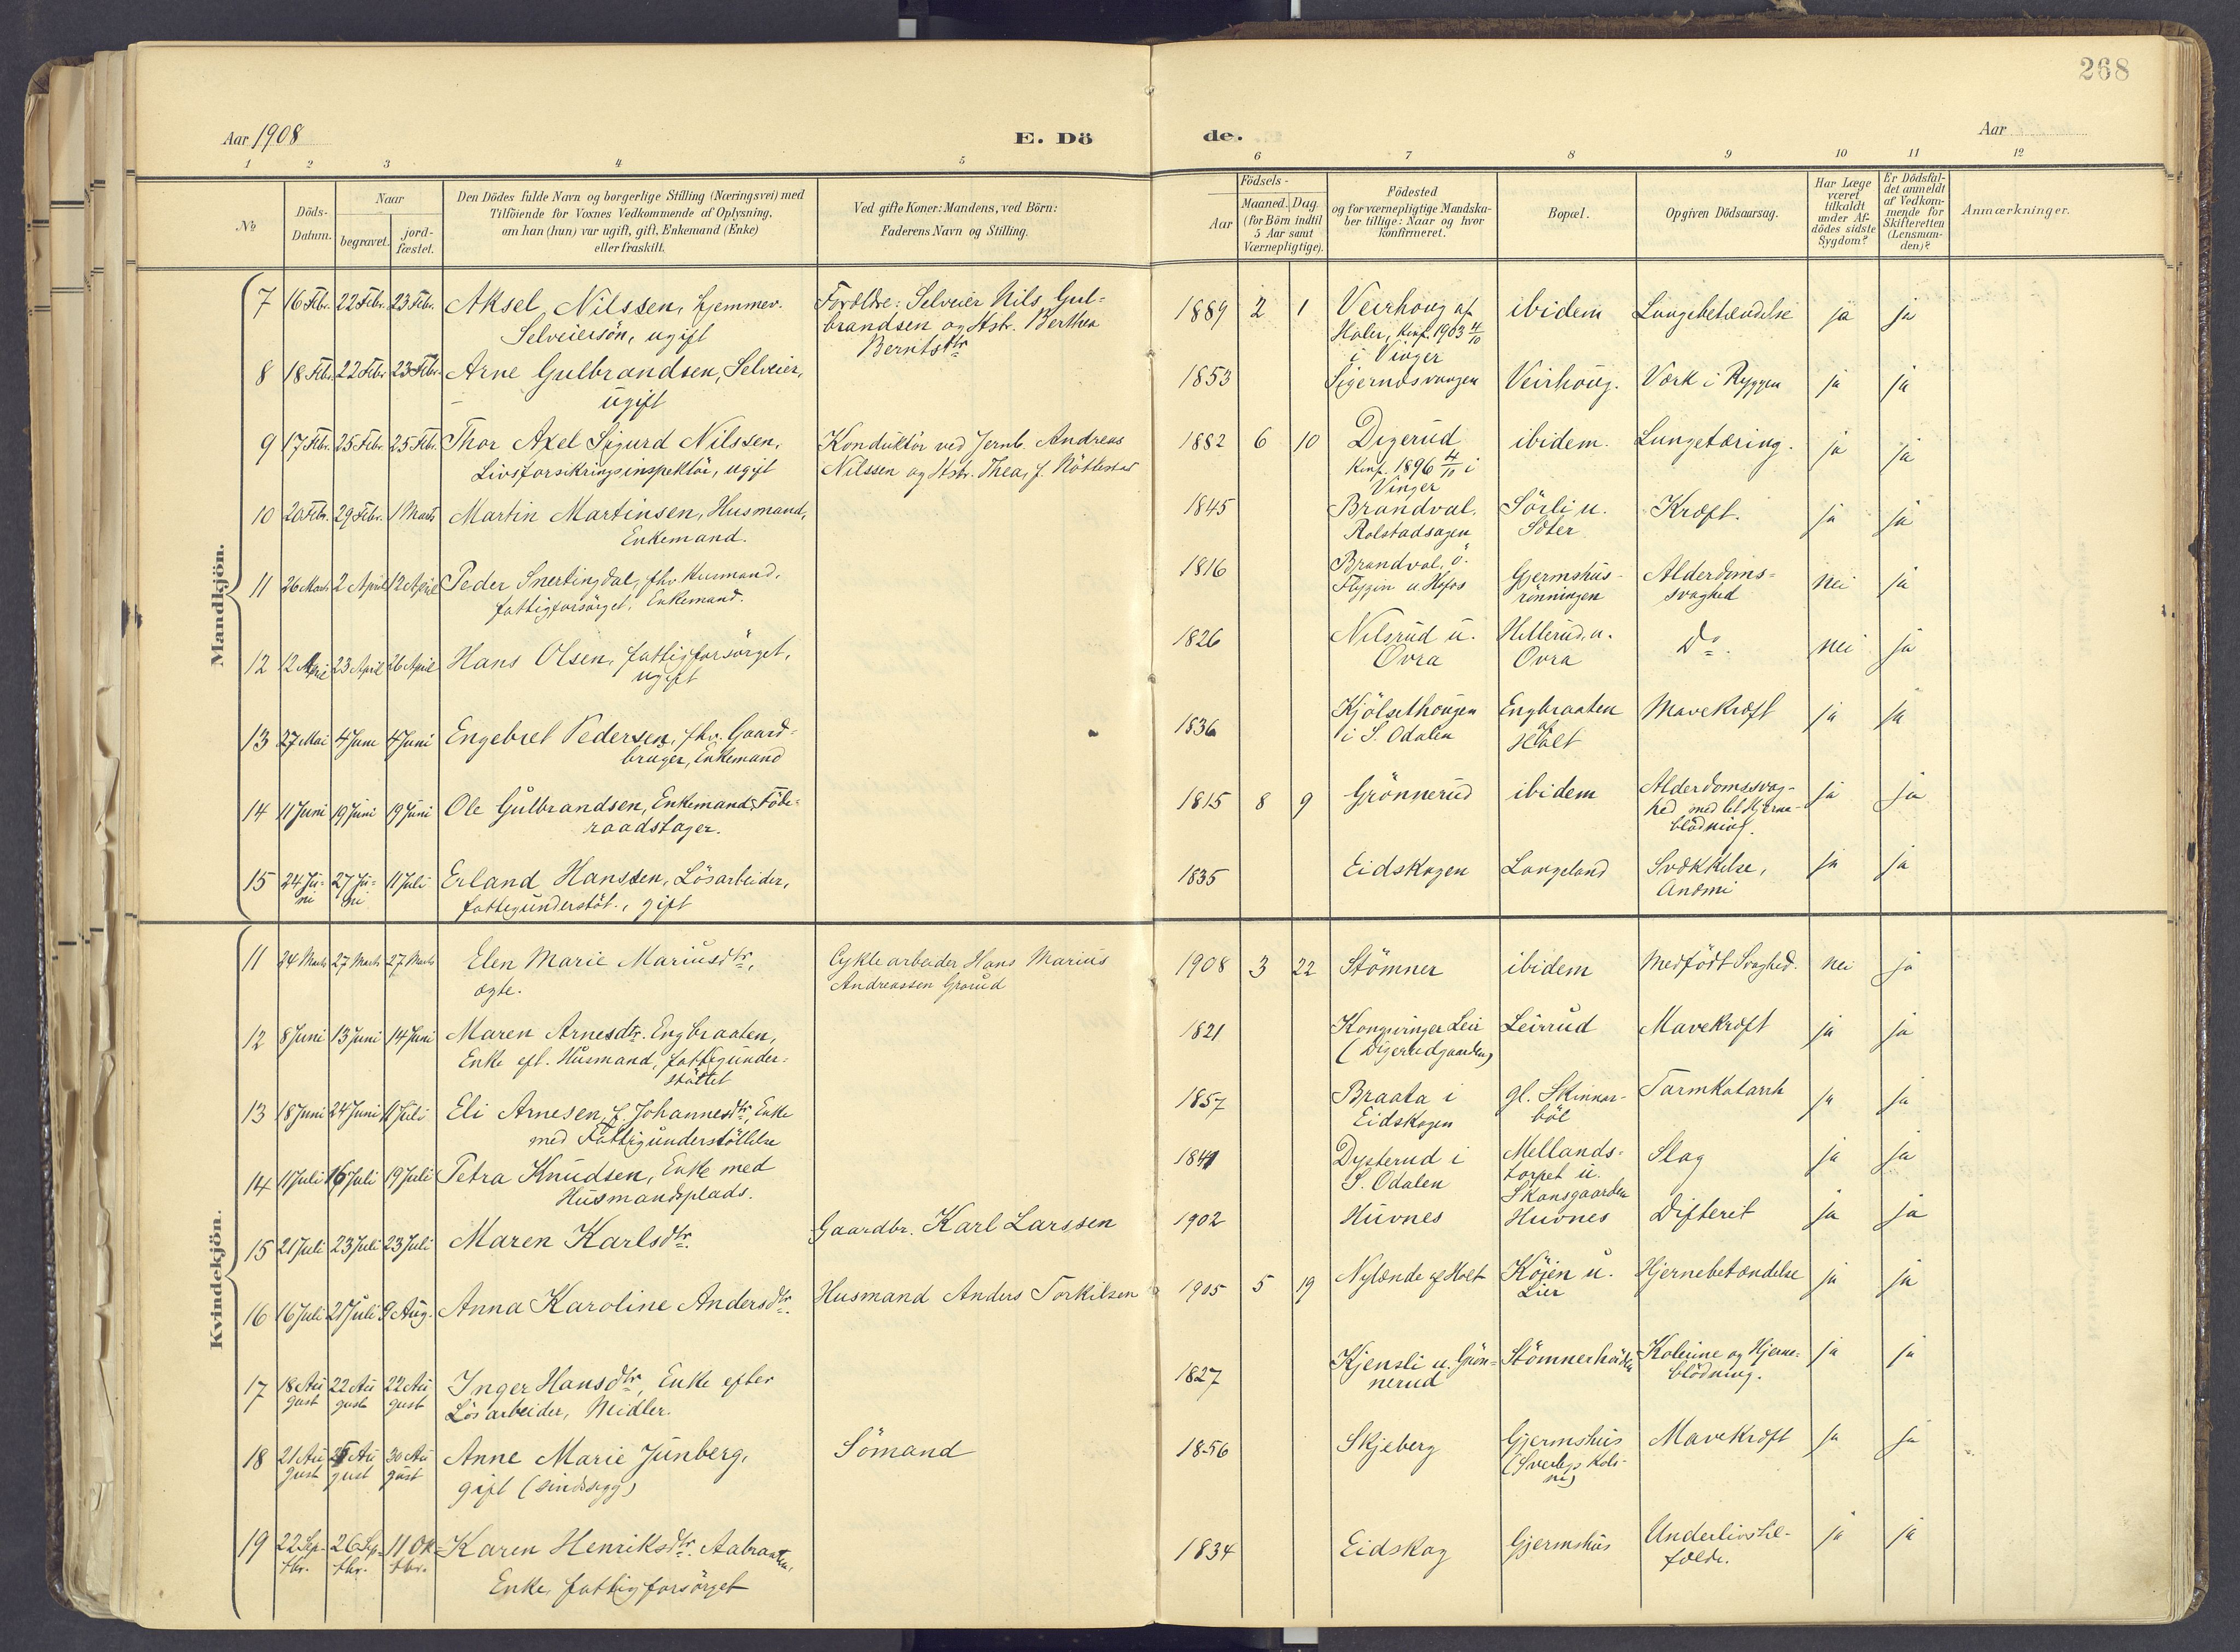 268
Aar 1908
E. Dö
de.
Aar
1 2 3 4 5 6 7 8 9 10 11 12
№
Döds-
Datum.
Naar
begravet.
jord-
fæstet.
Den Dödes fulde Navn og borgerlige Stilling (Næringsvei) med
Tilföiende for Voxnes Vedkommende af Oplysning,
om han (hun) var ugift, gift, Enkemand (Enke)
eller fraskilt.
Ved gifte Koner: Mandens, ved Börn:
Faderens Navn og Stilling.
Födsels-
Aar
Maaned. Dag.
(for Börn indtil
5 Aar samt
Værnepligtige).
Födested
og for værnepligtige Mandska-
ber tillige: Naar og hvor
konfirmeret.
Bopæl.
Opgiven Dödsaarsag.
Har Læge
været
tilkaldt
under Af-
dödes sidste
Sygdom?
Er Dödsfal-
det anmeldt
af Vedkom-
mende for
Skifteretten
(Lensman-
den)?
Anmærkninger.
Mandkjön.
7 16 Febr. 22 Febr. 23 Febr. Aksel Nilssen, hjemmev.
Selveiersön, ugift
Forældre: Selveier Nils Gul-
brandsen og Hstr. Berthea
Berntsdtr
1889 2 1 Veirhoug af
Holer, Konf. 1903 4/10
i Vinger
ibidem Lungebetændelse ja ja
8 18 Febr. 22 Febr. 23 Febr. Arne Gulbrandsen, Selveier,
ugift
1853 Sigernæsvangen Veirhoug. Værk i Ryggen ja ja
9 17 Febr. 25 Febr. 25 Febr. Thor Axel Sigurd Nilssen,
Livsforsikringsinspektör, ugift
Konduktör ved Jernb. Andreas
Nilssen og Hstr. Thea, f. Nöttestad
1882 6 10 Digerud
Konf. 1896 4/10 i
Vinger
ibidem. Lungetæring. ja ja
10 20 Febr. 29 Febr. 1 Marts Martin Martinsen, Husmand,
Enkemand.
1845 Brandval,
Rolstadsagen
Sörli u.
Sæter
Kræft. ja ja
11 26 Marts 2 April 12 April Peder Snertingdal, fhv. Husmand,
fattigforsörget, Enkemand.
1816 Brandval, ö.
Flygin u. Hofos
Gjermshus-
rönningen
Alderdoms-
svaghed
nei ja
12 12 April 23 April 26 April Hans Olsen, fattigforsörget,
ugift
1826 Nilsrud u.
Ovra
Hillerud u.
Ovra
Do. nei ja
13 27 Mai 4 Juni 4 Juni Engebret Pedersen, fhv. Gaard-
bruger, Enkemand
1836 Kjölsethougen
i S. Odalen
Engbraaten
af
Holt
Mavekræft ja ja
14 11 Juni 19 Juni 19 Juni Ole Gulbrandsen, Enkemand, Föde-
raadstager.
1815 8 9 Grönnerud ibidem Alderdomssvag-
hed med lit Hjerne-
blödning.
ja ja
15 24 Ju-
ni
27 Ju-
ni
11 Juli Erland Hanssen, Lösarbeider,
fattigunderstöt., gift
1835 Eidskogen Langeland Svækkelse,
Anæmi
ja ja
Kvindekjön.
11 24 Marts 27 Marts 27 Marts Elen Marie Mariusdtr,
ægte.
Cyklearbeider Hans Marius
Andreassen Grorud
1908 3 22 Stömner ibidem Medfödt Svaghed. nei ja
12 8 Juni 13 Juni 14 Juni Maren Arnesdtr. Engbraaten,
Enke eft. Husmand, fattigunder-
stöttet
1821 Kongsvinger Leir
(Digerudgaarden)
Leirrud Mavekræft ja ja
13 18 Juni 24 Juni 11 Juli Eli Arnesen, f. Johannesdtr, Enke
med Fattigunderstöttelse
1857 Braata i
Eidskogen
gl. Skinnar-
böl
Tarmkatarrh ja ja
14 11 Juli 16 Juli 19 Juli Petra Knudsen, Enke med
Husmandsplads.
1841 Dysterud i
S. Odalen
Mellands-
torpet u.
Skansgaarden
Slag ja ja
15 21 Juli 23 Juli 23 Juli Maren Karlsdtr.
Gaardbr. Karl Larssen
1902 Huvnes Huvnes Difterit ja ja
16 16 Juli 21 Juli 9 Aug. Anna Karoline Andersdtr.
Husmand Anders Torkilsen
1905 5 19 Nylænde af Holt Köjen u.
Lier
Hjernebetændelse ja ja
17 18 Au
gust
22 Au
gust
22 Au
gust
Inger Hansdtr, Enke efter
Lösarbeider, Midler.
1827 Kjensli u. Grön-
nerud
Stömnerhöiden Kolerine og Hjerne-
blödning.
ja ja
18 21 Au
gust
Au
gust
30 Au
gust
Anne Marie Junberg,
gift (sindssyg)
Sömand
1856 Skjeberg Gjermshus
Mavekræft ja ja
19 22 Sep-
tbr.
26 Sep-
tbr.
11 Ok-
tbr.
Karen Henriksdtr. Aabraaten,
Enke, fattigforsörget
1834 Eidskog Gjermshus Underlivstil-
fælde.
ja ja